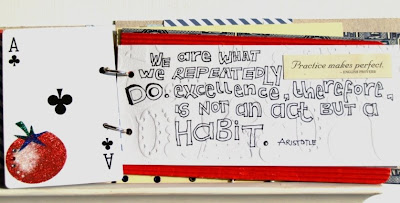 A
WE aRE WHAT
WE REPEATEDLY
DO. excellence, therefore,
is NOT an act BUT a
HaBiT.
ARISTOTLE
Practice makes perfect.
- ENGLISH PROVERB
A